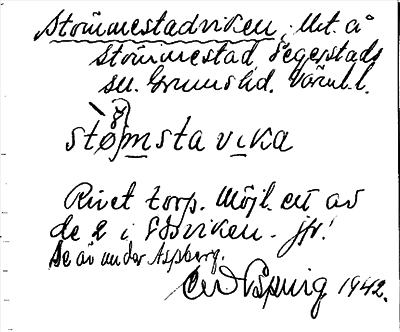 Stömmestadviken, Ut. å
Stömmestad Segerstads
sn. Grums hd. Värml.
stømsta vika
Rivet torp. Möjl. ett av
de 2 i Edsviken. jfr!
De är under Aspberg.
1942.